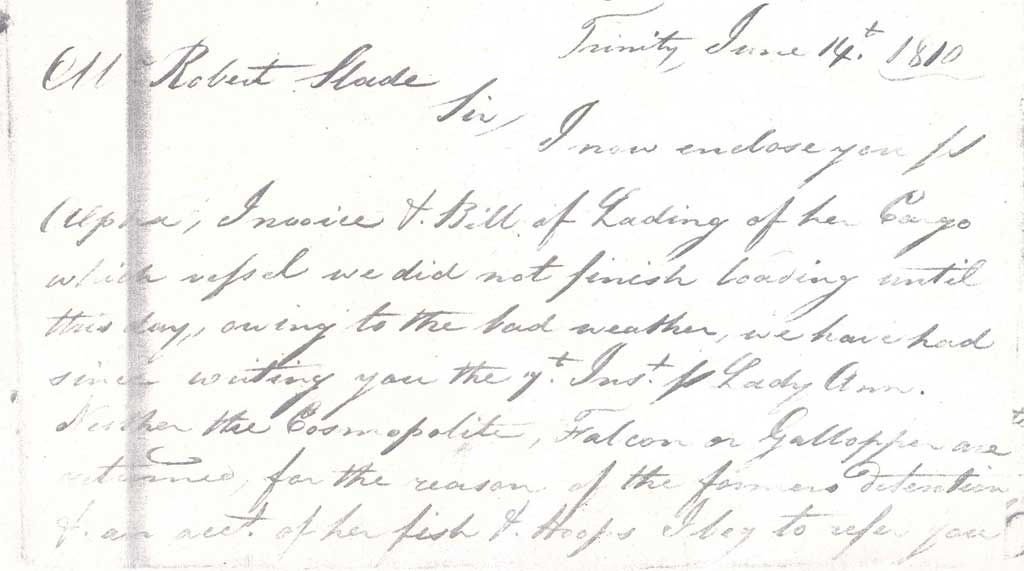 Trinity, June 14.t 1810
Mr Robert Slade
Sir,
I now enclose you p/s
Alpha, Invoice &. Bill of Lading of her Cargo
which vessel we did not finish loading until
this day, owing to the bad weather, we have had
since writing you the 7.t Ins.t p/ Lady Ann.
Neither the Cosmopolite, Falcon or Gallopper are
returned, for the reason of the formers detention
&. an acc.t of her fish &. Hoops I beg to refer you